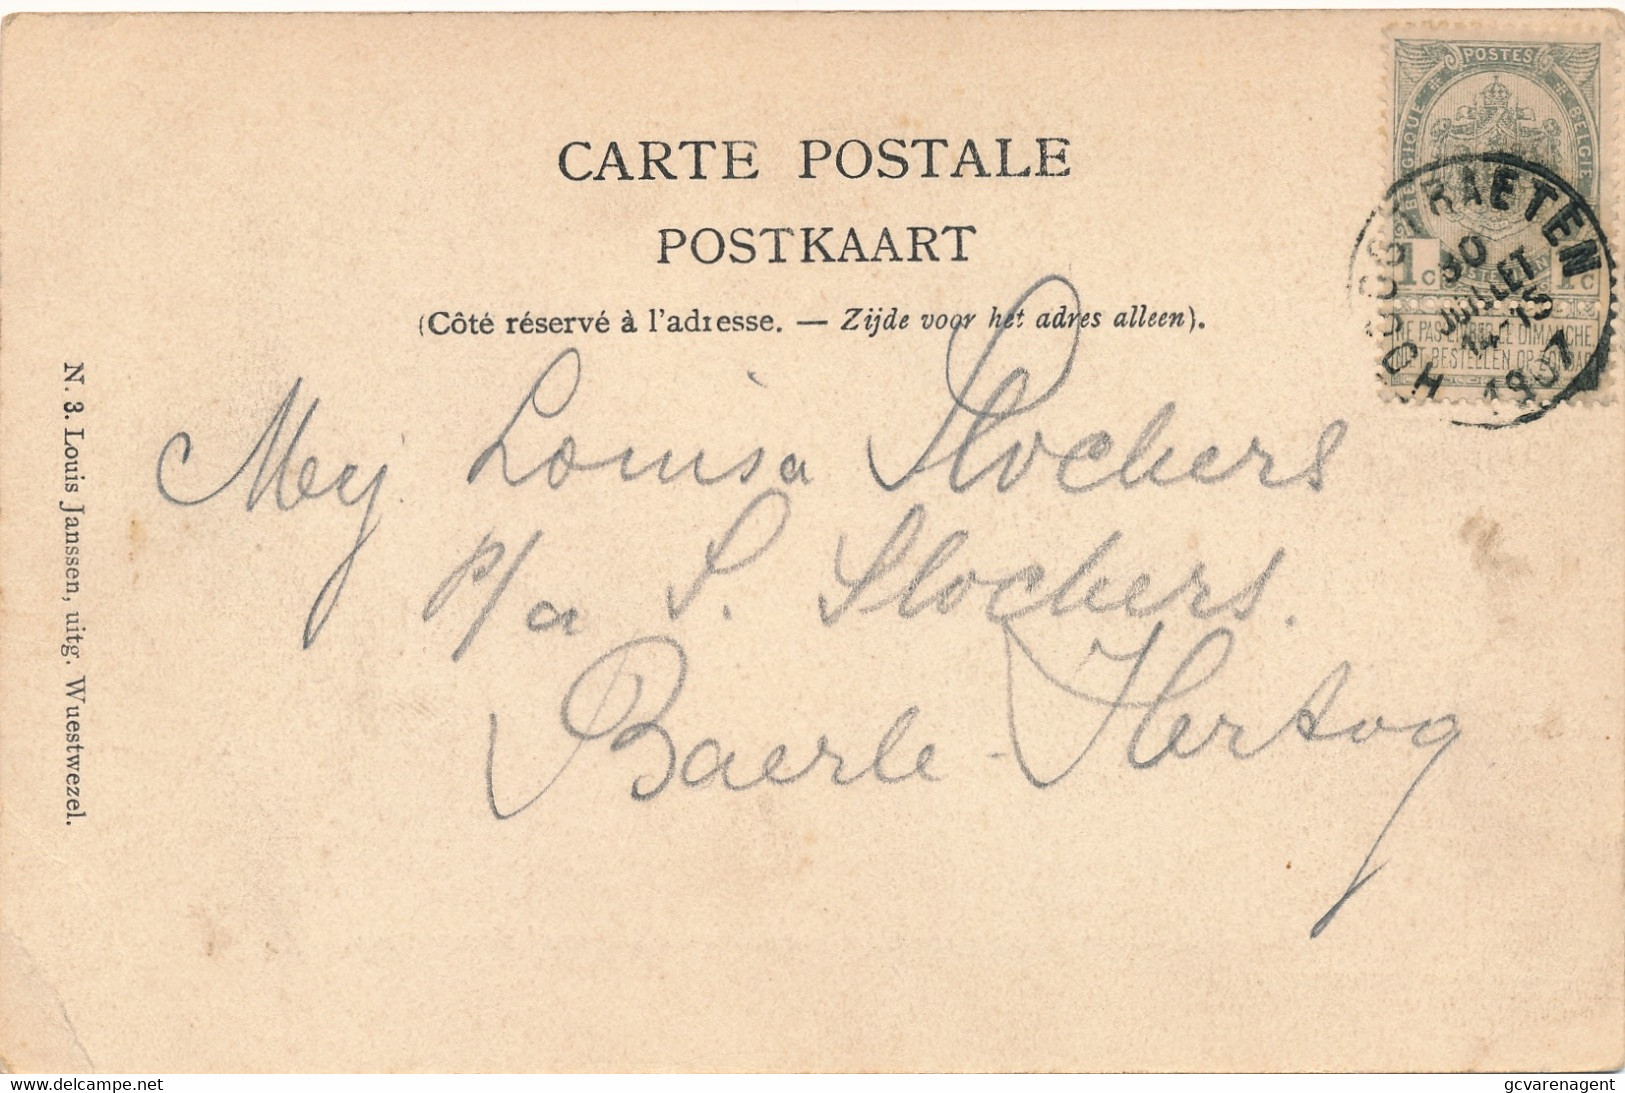 CARTE POSTALE
POSTKAART
(Côté réservé à l'adresse. — Zijde voor het adres alleen).
POSTES
BELGIQUE
BELGIE
1c
1c
NE PAS LIVRER LE DIMANCHE
NIET BESTELLEN OP ZONDAG
HOOGSTRAETEN
30
JUILLET
14-15
1907
Mej. Louisa Stochers
p/a S. Stochers.
Baerle-Hertog
N. 3. Louis Janssen, uitg. Wuestwezel.
delcampe.net
gcvarenagent